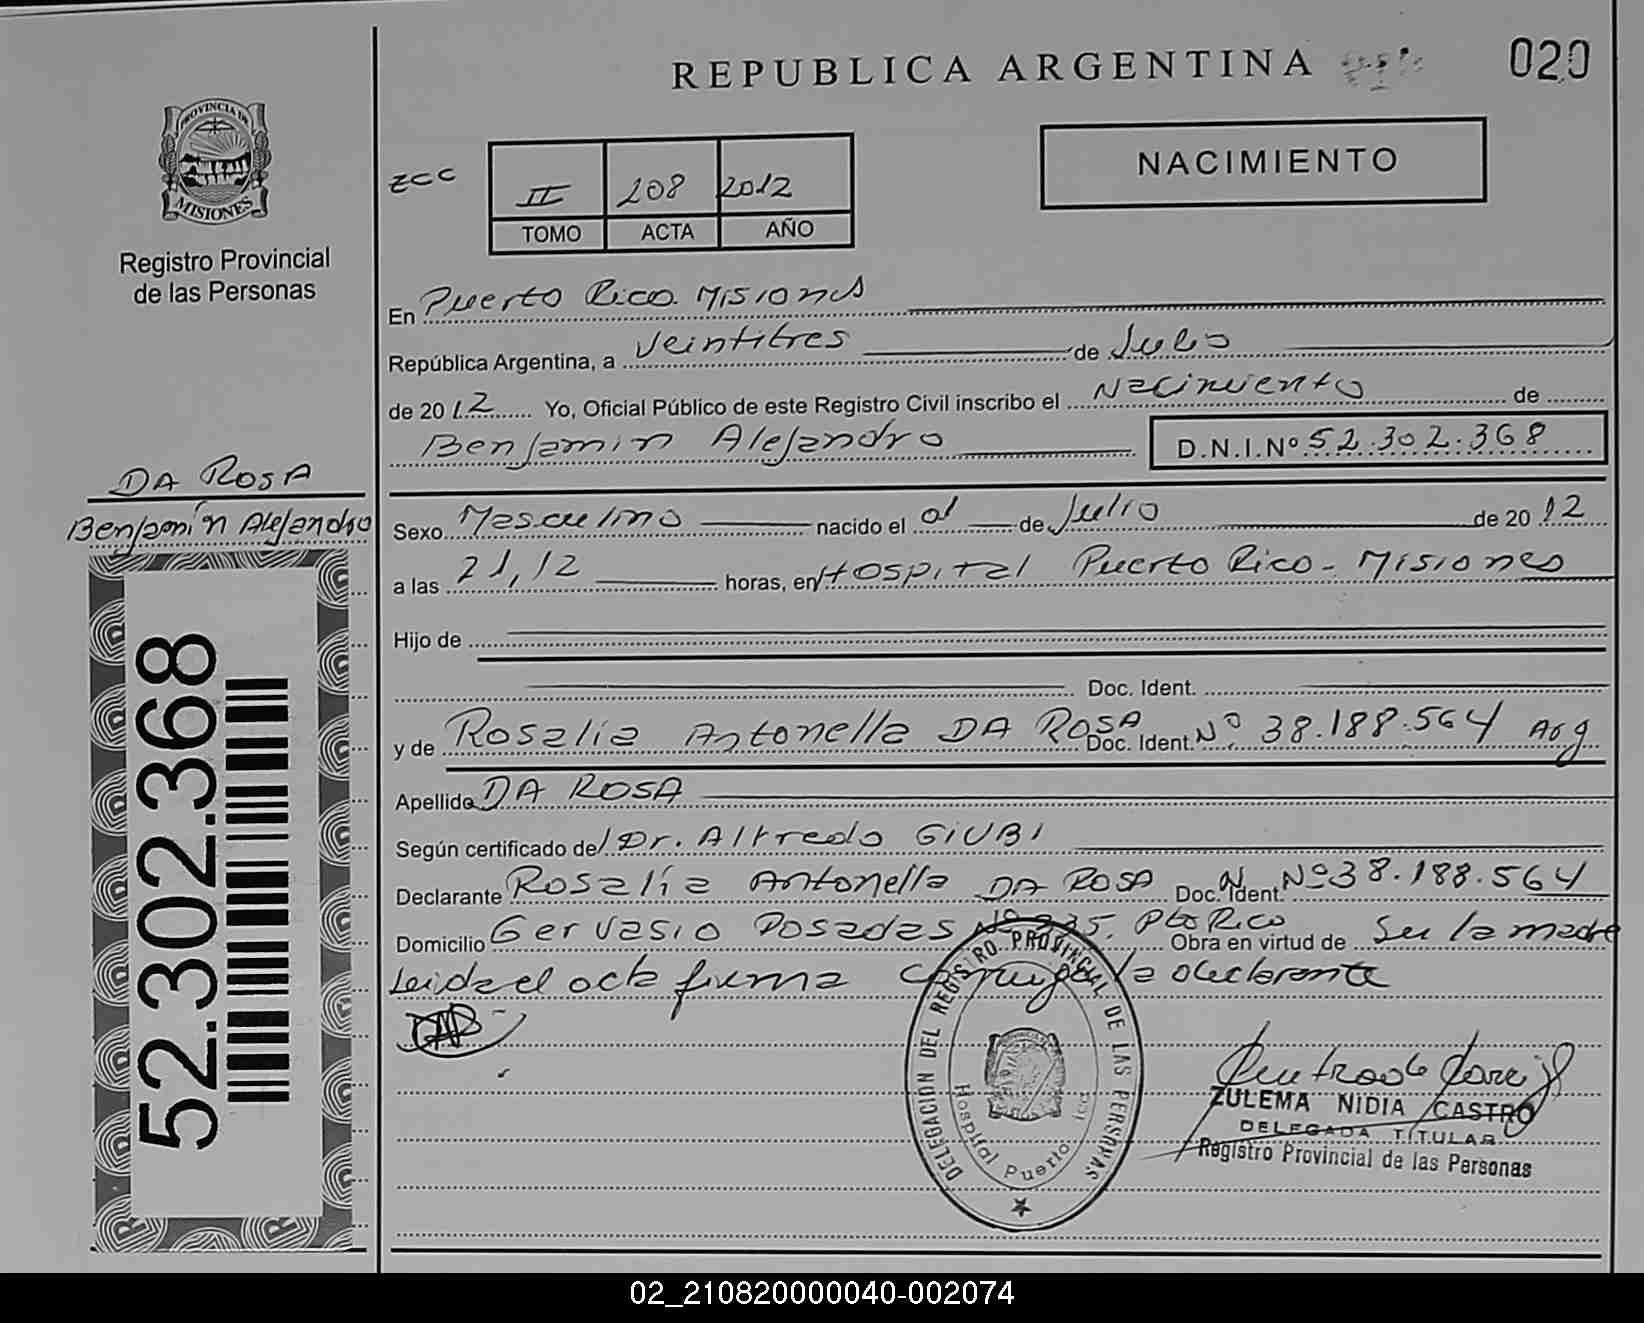 REPUBLICA ARGENTINA
020
PROVINCIA DE
MISIONES
Registro Provincial
de las Personas
NACIMIENTO
zcc
II 208 2012
TOMO ACTA AÑO
En Puerto Rico. Misiones
República Argentina, a Veintitres de Julio
de 2012 Yo, Oficial Público de este Registro Civil inscribo el Nacimiento de
Benjamin Alejandro D.N.I.Nº 52.302.368
DA ROSA
Benjamín Alejandro
52.302.368
Sexo Masculino nacido el de Julio de 2012
a las 21,12 horas, en Hospital Puerto Rico - Misiones
Hijo de
Doc. Ident.
y de Rosalia Antonella DA ROSA Doc. Ident. Nº 38.188.564 Arg
Apellido DA ROSA
Según certificado de Dr. Alfredo GIUBI
Declarante Rosalía Antonella DA ROSA Doc. Ident. Nº 38.188.564
Domicilio Gervasio Posadas Nº 235. Pto Rico Obra en virtud de Ser la madre
Leida el acta firma conmigo la declarante
DELEGACION DEL REGISTRO PROVINCIAL DE LAS PERSONAS
Hospital Puerto
ZULEMA NIDIA CASTRO
DELEGADA TITULAR
Registro Provincial de las Personas
02_210820000040-002074